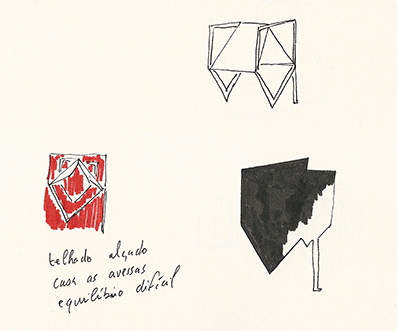 telhado alçado
casa as avessas
equilíbrio difícil